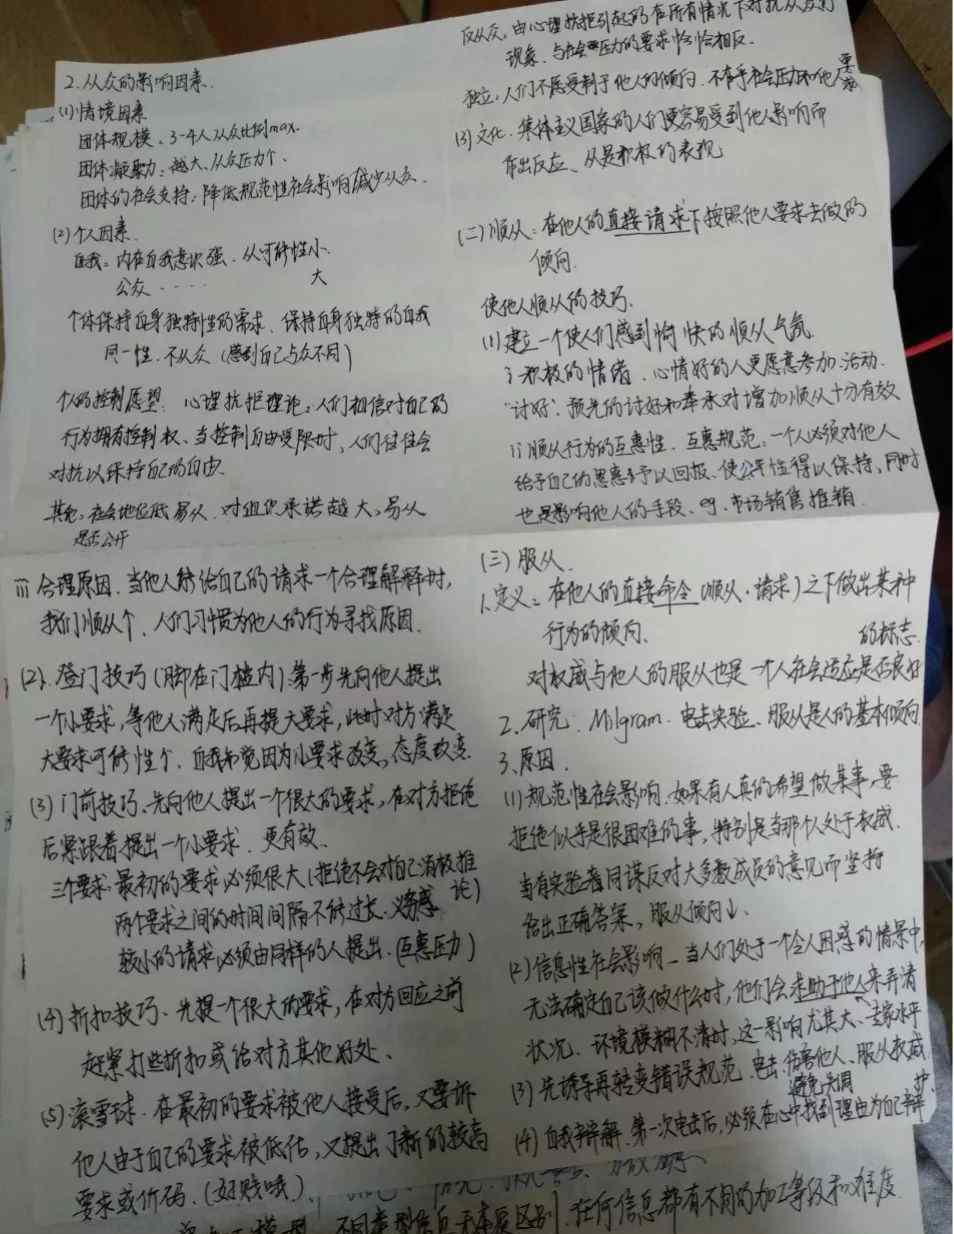 2. 从众的影响因素.
(1) 情境因素
团体规模、3-4人从众比例max.
团体凝聚力:越大、从众压力↑.
团体的社会支持:降低规范性社会影响减少从众.
(2) 个人因素.
自我:内在自我意识强. 从可能性小.
公众 ····· 大
个体保持自身独特性的需求、保持自身独特的自我
同一性. 不从众 (感到自己与众不同)
个人的控制愿望. 心理抗拒理论:人们相信对自己的
行为拥有控制权、当控制自由受限时,人们往往会
对抗以保持自己的自由.
其他:社会地位低易从. 对组织承诺越大、易从
是否公开
反从众:由心理抗拒引起的在所有情况下对抗从众的
现象. 与社会压力的要求恰恰相反.
独立:人们不愿受制于他人的倾向. 不在乎社会压力和他人要求
(3) 文化. 集体主义国家的人们更容易受到他人影响而
作出反应、从是积极的表现
(二) 顺从:在他人的直接请求下按照他人要求去做的
倾向.
使他人顺从的技巧.
(1) 建立一个使人们感到愉快的顺从气氛
i 积极的情绪. 心情好的人更愿意参加活动.
"讨好":预先的讨好和奉承对增加顺从十分有效
ii 顺从行为的互惠性. 互惠规范:一个人必须对他人
给予自己的恩惠予以回报. 使公平性得以保持、同时
也是影响他人的手段、 市场销售推销.
iii 合理原因. 当他人能给自己的请求一个合理解释时,
我们顺从↑. 人们习惯为他人的行为寻找原因.
(2). 登门技巧 (脚在门槛内) 第一步先向他人提出
一个小要求,等他人满足后再提大要求,此时对方满足
大要求可能性↑. 自我知觉因为小要求改变、态度改变.
(3) 门前技巧. 先向他人提出一个很大的要求,在对方拒绝
后紧跟着提出一个小要求. 更有效.
三个要求:最初的要求必须很大(拒绝不会对自己消极推论)
两个要求之间的时间间隔不能过长. 义务感
较小的请求必须由同样的人提出. (互惠压力)
(4) 折扣技巧、先提一个很大的要求,在对方回应之前
赶紧打些折扣或给对方其他好处、
(5) 滚雪球. 在最初的要求被他人接受后,又要诉
他人由于自己的要求被低估,又提出了新的较高
要求或价码. (好贱哦).
(三) 服从.
1、定义:在他人的直接命令 (顺从·请求) 之下做出某种
行为的倾向.
对权威与他人的服从也是一个人社会适应是否良好的标志.
2、研究. Milgram. 电击实验、服从是人的基本倾向
3、原因.
(1) 规范性社会影响. 如果有人真的希望做某事,要
拒绝似乎是很困难的事,特别是当那个人处于权威.
当有实验者同谋反对大多数成员的意见而坚持
给出正确答案,服从倾向↓.
(2) 信息性社会影响 — 当人们处于一个令人困惑的情景中,
无法确定自己该做什么时,他们会求助于他人来弄清
状况、环境模糊不清时,这一影响尤其大、专家水平
(3) 先诱导再转变错误规范. 电击、伤害他人、服从权威
避免失调
(4) 自我辩解. 第一次电击后,必须在心中找到理由为自己辩护.
不同类型信息 无本质区别 在何信息都有不同的加工等级和难度